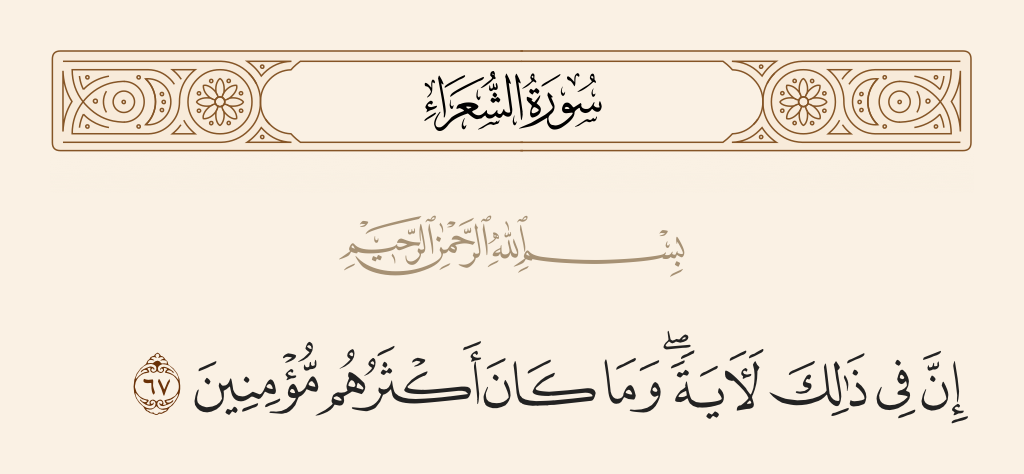 سُورَةُ الشُّعَرَاءِ
بِسْمِ ٱللَّهِ ٱلرَّحْمَٰنِ ٱلرَّحِيمِ
إِنَّ فِى ذَٰلِكَ لَـَٔايَةًۖ وَمَا كَانَ أَكْثَرُهُم مُّؤْمِنِينَ ٦٧